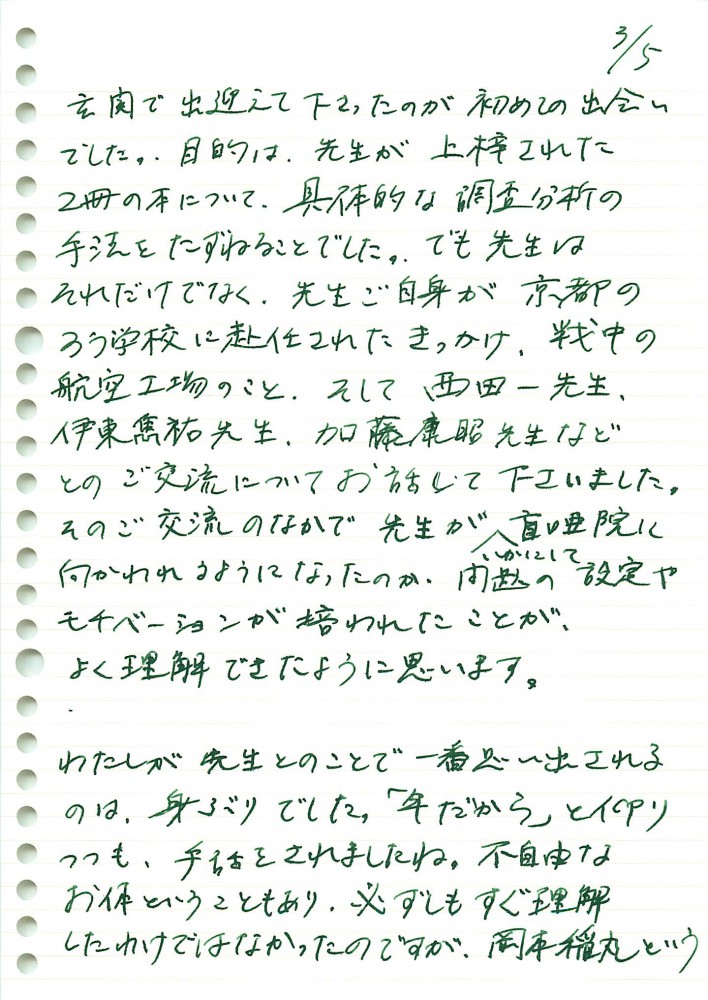 3/5
玄関で出迎えて下さったのが初めての出会い
でした。目的は、先生が上梓された
2冊の本について、具体的な調査分析の
手法をたずねることでした。でも先生は
それだけでなく、先生ご自身が京都の
ろう学校に赴任されたきっかけ、戦中の
航空工場のこと、そして西田一先生、
伊東雋祐先生、加藤康昭先生など
とのご交流についてお話して下さいました。
そのご交流のなかで先生がいかにして盲唖院に
向かわれるようになったのか、問題の設定や
モチベーションが培われたことが、
よく理解できたように思います。
わたしが先生とのことで一番思い出される
のは、身ぶりでした。「年だから」と仰り
つつも、手話をされましたね。不自由な
お体ということもあり、必ずしもすぐ理解
したわけではなかったのですが、岡本稲丸という